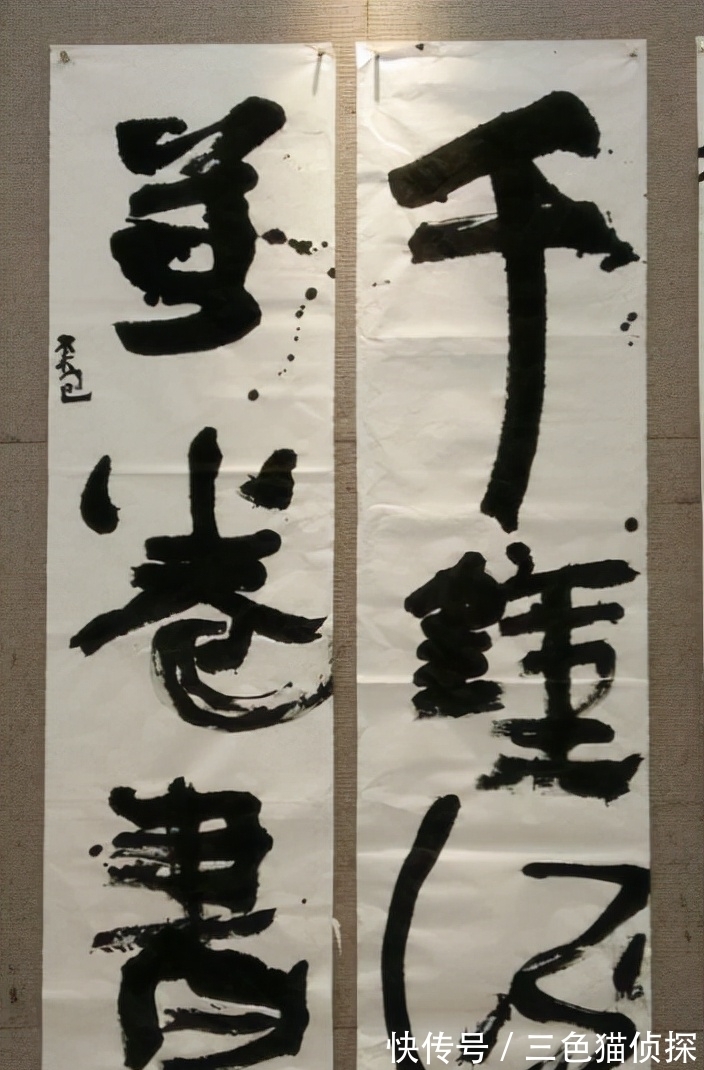 千鍾
萬卷書
快传号 / 三色猫侦探